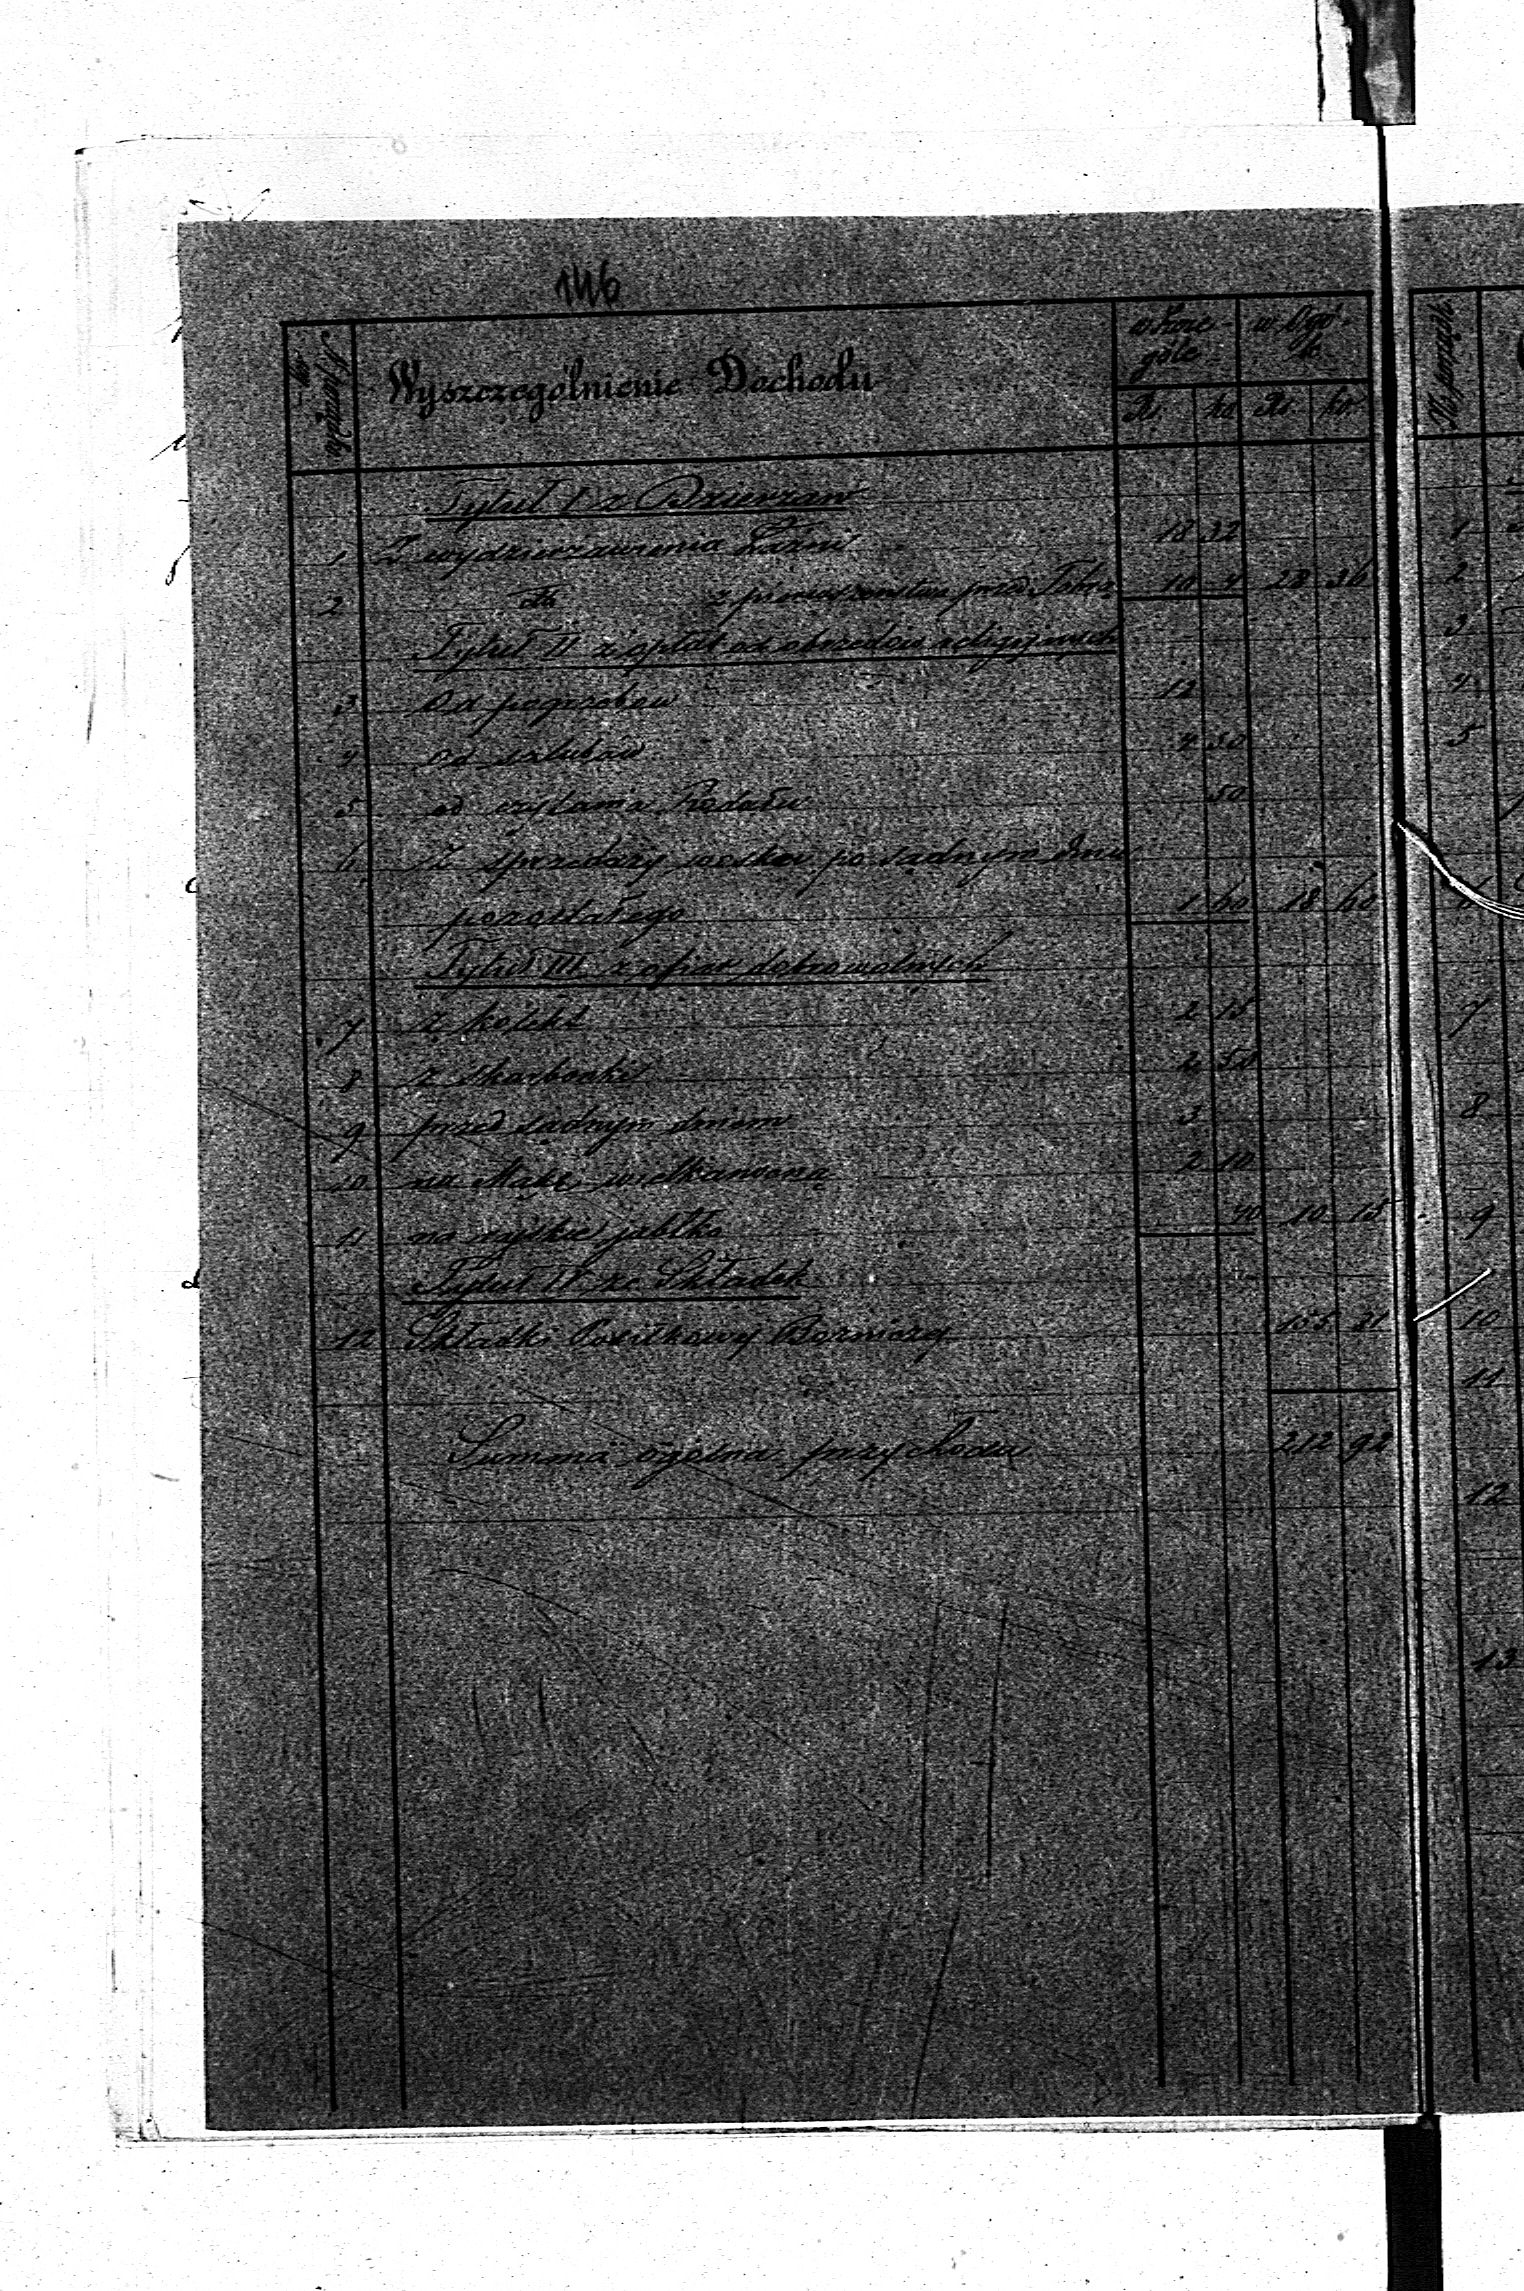 146
N porządko-wy
Wyszczególnienie Dochodu
w szcze-góle
w Ogó-le
Rs. ko Rs. ko.
Tytuł I z Dzierżaw
1 Z wydzierżawienia Łaźni 18 32
2 z pierwszeństwa przed 10 4 28 36
Tytuł II z opłat od obrzędów religijnych
3 Od pogrzebów 12
4 od szlubów 4 50
5 od czytania Rodału 50
6 Z sprzedaży wosku po sądnym dniu
pozostałego 1 60 18 60
Tytuł III z ofiar dobrowolnych
7 z kolekt 2 15
8 z skarbonki 2 50
9 przed sądnym dniem 3
10 na Mąkę wielkanocną 2 10
11 na rajskie jabłko 40 10 15
Tytuł IV ze Składek
12 Składki Bozniczy 155 21
Summa ogólna przychodu 212 92
N porząd.
1
2
3
4
5
7
8
9
10
11
12
13